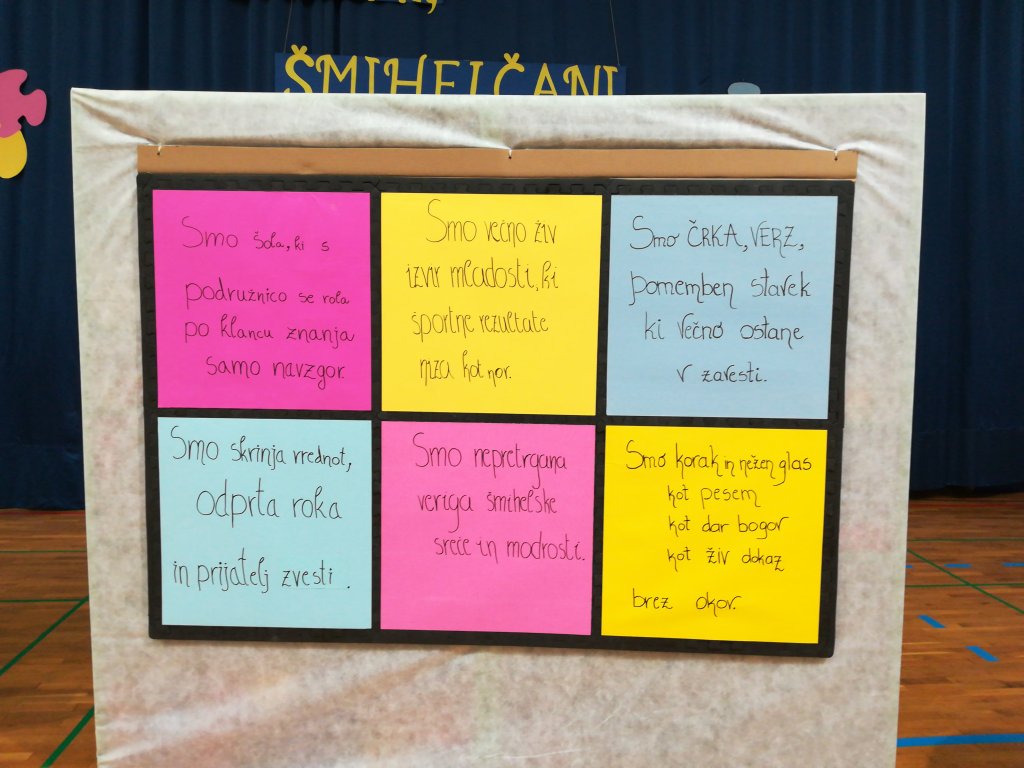 ŠMIHELČANI
Smo šola, ki s
podružnico se rola
po klancu znanja
samo navzgor.
Smo večno živ
izvir mladosti, ki
športne rezultate
niza kot nor.
Smo ČRKA, VERZ,
pomemben stavek
ki večno ostane
v zavesti.
Smo skrinja vrednot,
odprta roka
in prijatelj zvesti.
Smo nepretrgana
veriga šmihelske
sreče in modrosti.
Smo korak in nežen glas
kot pesem
kot dar bogov
kot živ dokaz
brez okov.